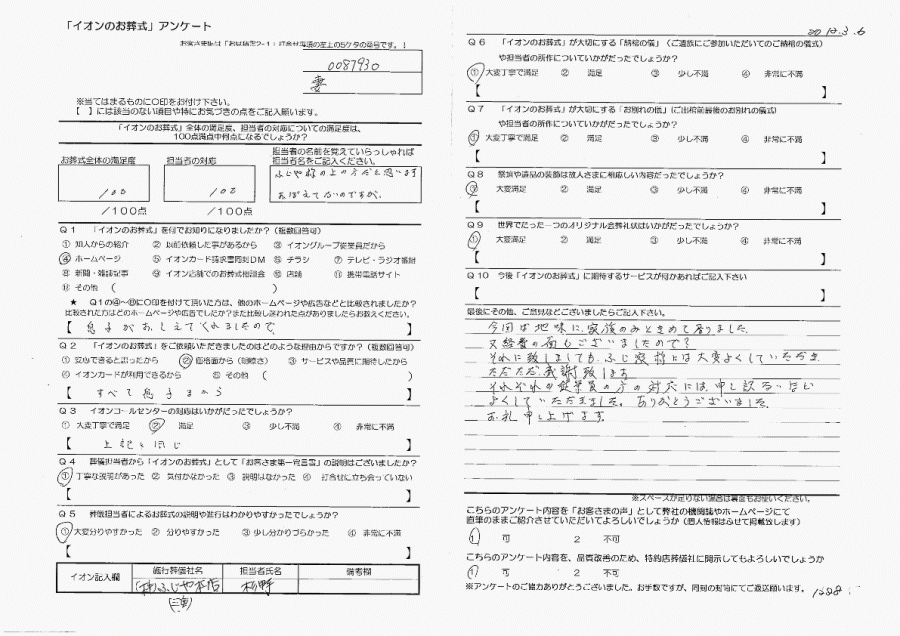 「イオンのお葬式」アンケート
0087930
妻
※当てはまるものに○印をお付け下さい。
【　】には該当のない項目や特にお気づきの点をご記入願います。
「イオンのお葬式」全体の満足度、担当者の対応についての満足度は、
100点満点中何点になるでしょうか？
お葬式全体の満足度
100
/100点
担当者の対応
100
/100点
担当者の名前を覚えていらっしゃれば
担当者名をご記入ください。
おぼえてないのですが、
Q1　「イオンのお葬式」を何でお知りになりましたか？（複数回答可）
① 知人からの紹介　② 以前依頼した事があるから　③ イオングループ従業員だから
④ ホームページ　⑤ イオンカード請求書同封DM　⑥ チラシ　⑦ テレビ・ラジオ番組
⑧ 新聞・雑誌記事　⑨ イオン店舗でのお葬式相談会　⑩ 店舗　⑪ 携帯電話サイト
⑫ その他　（　　）
★　Q1の④～⑫に○印を付けて頂いた方は、他のホームページや広告などと比較されましたか？
比較された方はどのホームページや広告でしたか？また比較し迷われた点がありましたらお教えください。
【　息子がおしえてくれましたので　】
Q2　「イオンのお葬式」をご依頼いただきましたのはどのような理由からですか？（複数回答可）
① 安心できると思ったから　② 価格面から（明瞭さ）　③ サービスや品質に期待したから
④ イオンカードが利用できるから　⑤ その他　（　　）
【　すべて息子まかせ　】
Q3　イオンコールセンターの対応はいかがだったでしょうか？
① 大変丁寧で満足　② 満足　③ 少し不満　④ 非常に不満
【　上記と同じ　】
Q4　葬儀担当者から「イオンのお葬式」として「お客さま第一宣言書」の説明はございましたか？
① 丁寧な説明があった　② 気付かなかった　③ 説明はなかった　④ 打合せに立ち会っていない
【　】
Q5　葬儀担当者によるお葬式の説明や進行はわかりやすかったでしょうか？
① 大変分りやすかった　② 分りやすかった　③ 少し分かりづらかった　④ 非常に不満
【　】
イオン記入欄　施行葬儀社名　担当者氏名　備考欄
(株)ふじや本店　杉野
Q6　「イオンのお葬式」が大切にする「納棺の儀」（ご遺族にご参加いただいてのご納棺の儀式）
や担当者の所作についていかがだったでしょうか？
① 大変丁寧で満足　② 満足　③ 少し不満　④ 非常に不満
【　】
Q7　「イオンのお葬式」が大切にする「お別れの儀」（ご出棺前最後のお別れの儀式）
や担当者の所作についていかがだったでしょうか？
① 大変丁寧で満足　② 満足　③ 少し不満　④ 非常に不満
【　】
Q8　祭壇や遺品の装飾は故人さまに相応しい内容だったでしょうか？
① 大変満足　② 満足　③ 少し不満　④ 非常に不満
【　】
Q9　世界でたった一つのオリジナル会葬礼状はいかがだったでしょうか？
① 大変満足　② 満足　③ 少し不満　④ 非常に不満
【　】
Q10　今後「イオンのお葬式」に期待するサービスが何かあればご記入下さい
【　】
最後にその他、ご意見などございましたらご記入下さい。
今回は地味に家族のみときめて居りました
又経費の面もございましたので？
それに致しましても、ふじ家様には大変よくしていただき
ただただ感謝致します
それぞれの従業員の方の対応には申し訳ないほど
よくしていただきました。ありがとうございました。
お礼申し上げます。
※スペースが足りない場合は裏面もお使いください。
こちらのアンケート内容を「お客さまの声」として弊社の機関誌やホームページにて
直筆のままご紹介させていただいてよろしいでしょうか（個人情報はふせて掲載致します）
1　可　2　不可
こちらのアンケート内容を、品質改善のため、特約店葬儀社に開示してもよろしいでしょうか
1　可　2　不可
※アンケートのご協力ありがとうございました。お手数ですが、同封の封筒にてご返送願います。